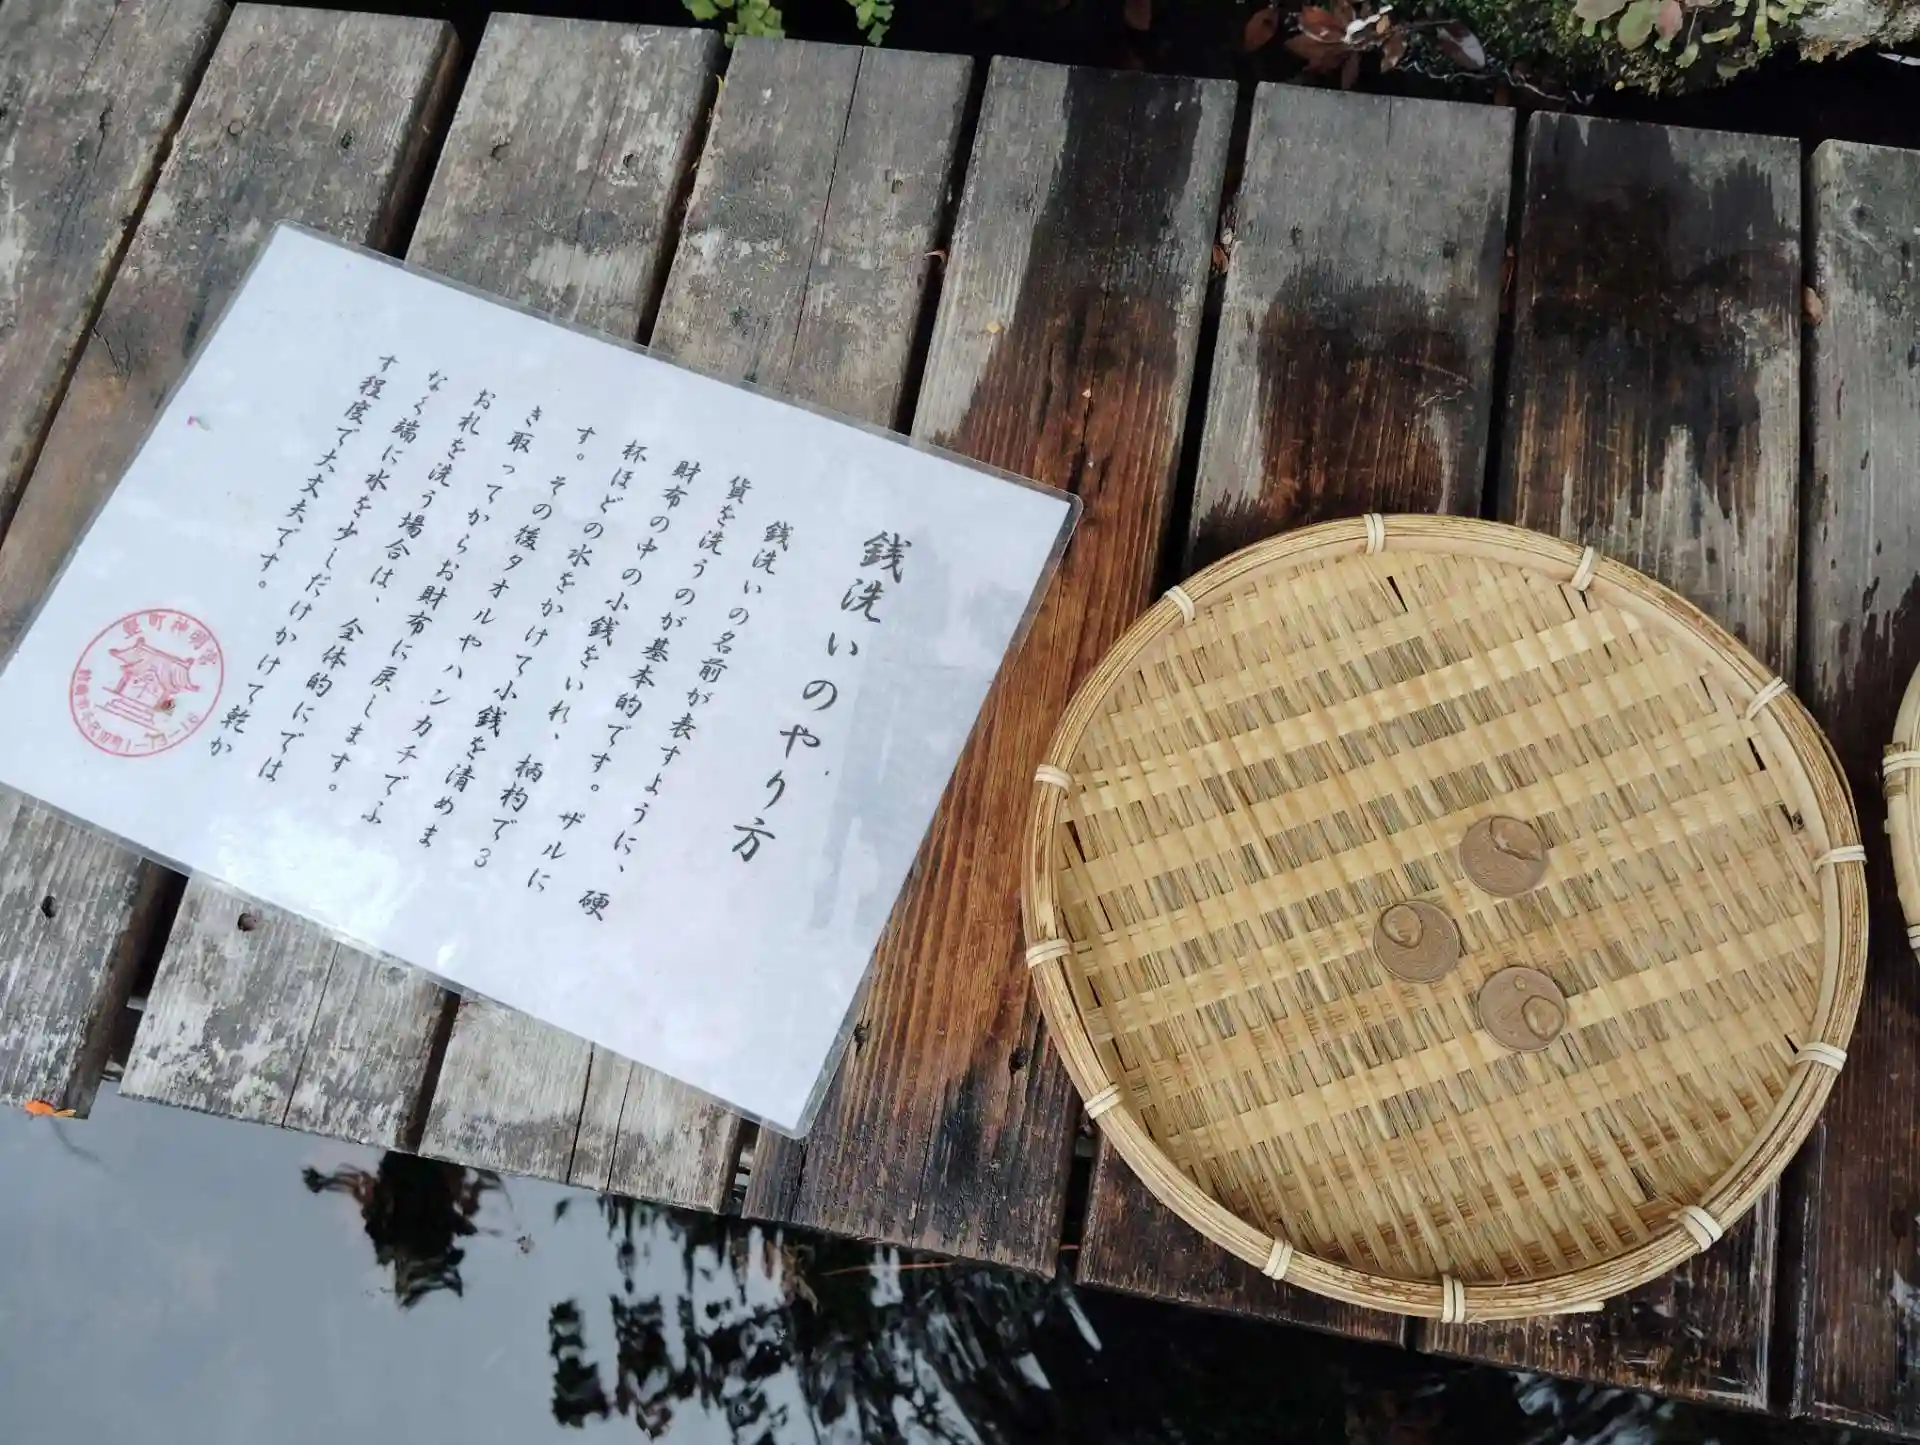 銭洗いのやり方
銭洗いの名前が表すように、硬
貨を洗うのが基本的です。ザルに
財布の中の小銭をいれ、柄杓で3
杯ほどの水をかけて小銭を清めま
す。その後タオルやハンカチでふ
き取ってからお財布に戻します。
お札を洗う場合は、全体的にでは
なく端に水を少しだけかけて乾か
す程度で大丈夫です。
竪町神明宮